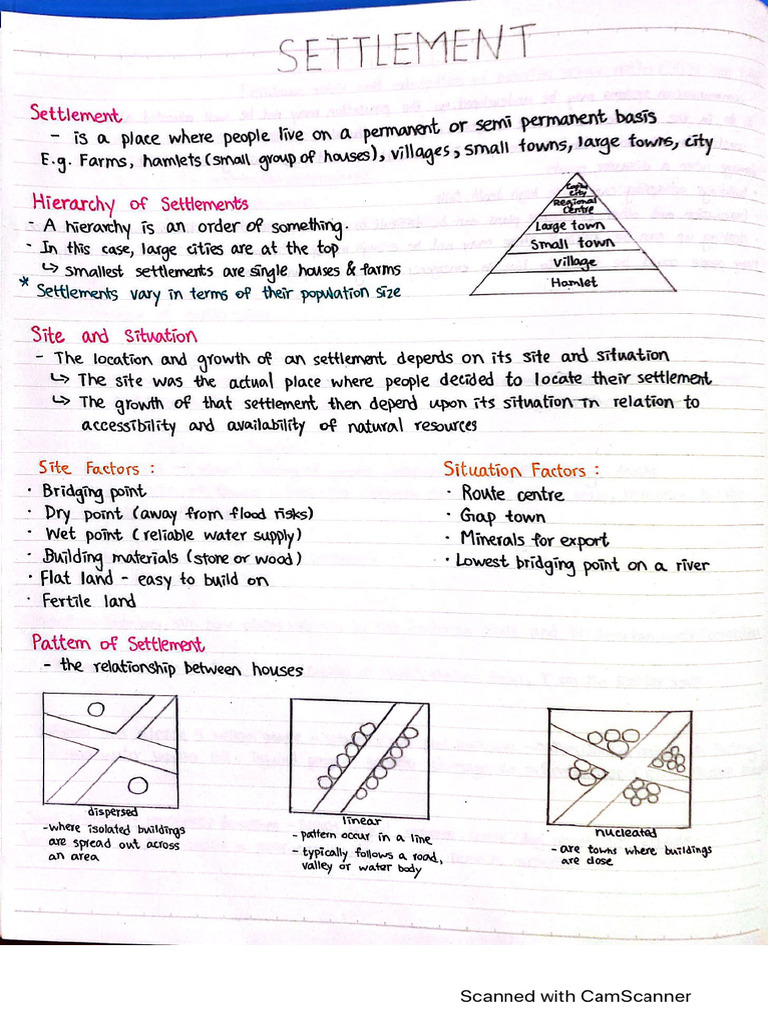 SETTLEMENT
Settlement
- is a place where people live on a permanent or semi permanent basis
E.g. Farms, hamlets (small group of houses), villages, small towns, large towns, city
Hierarchy of Settlements
- A hierarchy is an order of something.
- In this case, large cities are at the top
↳ smallest settlements are single houses & farms
* Settlements vary in terms of their population size
Capital
City
Regional
Centre
Large town
Small town
Village
Hamlet
Site and Situation
- The location and growth of an settlement depends on its site and situation
↳ The site was the actual place where people decided to locate their settlement
↳ The growth of that settlement then depend upon its situation in relation to
accessibility and availability of natural resources
Site Factors :
· Bridging point
· Dry point (away from flood risks)
· Wet point (reliable water supply)
· Building materials (stone or wood)
· Flat land - easy to build on
· Fertile land
Situation Factors :
· Route centre
· Gap town
· Minerals for export
· Lowest bridging point on a river
Pattern of Settlement
- the relationship between houses
dispersed
- where isolated buildings
are spread out across
an area
linear
- pattern occur in a line
- typically follows a road,
valley or water body
nucleated
- are towns where buildings
are close
Scanned with CamScanner